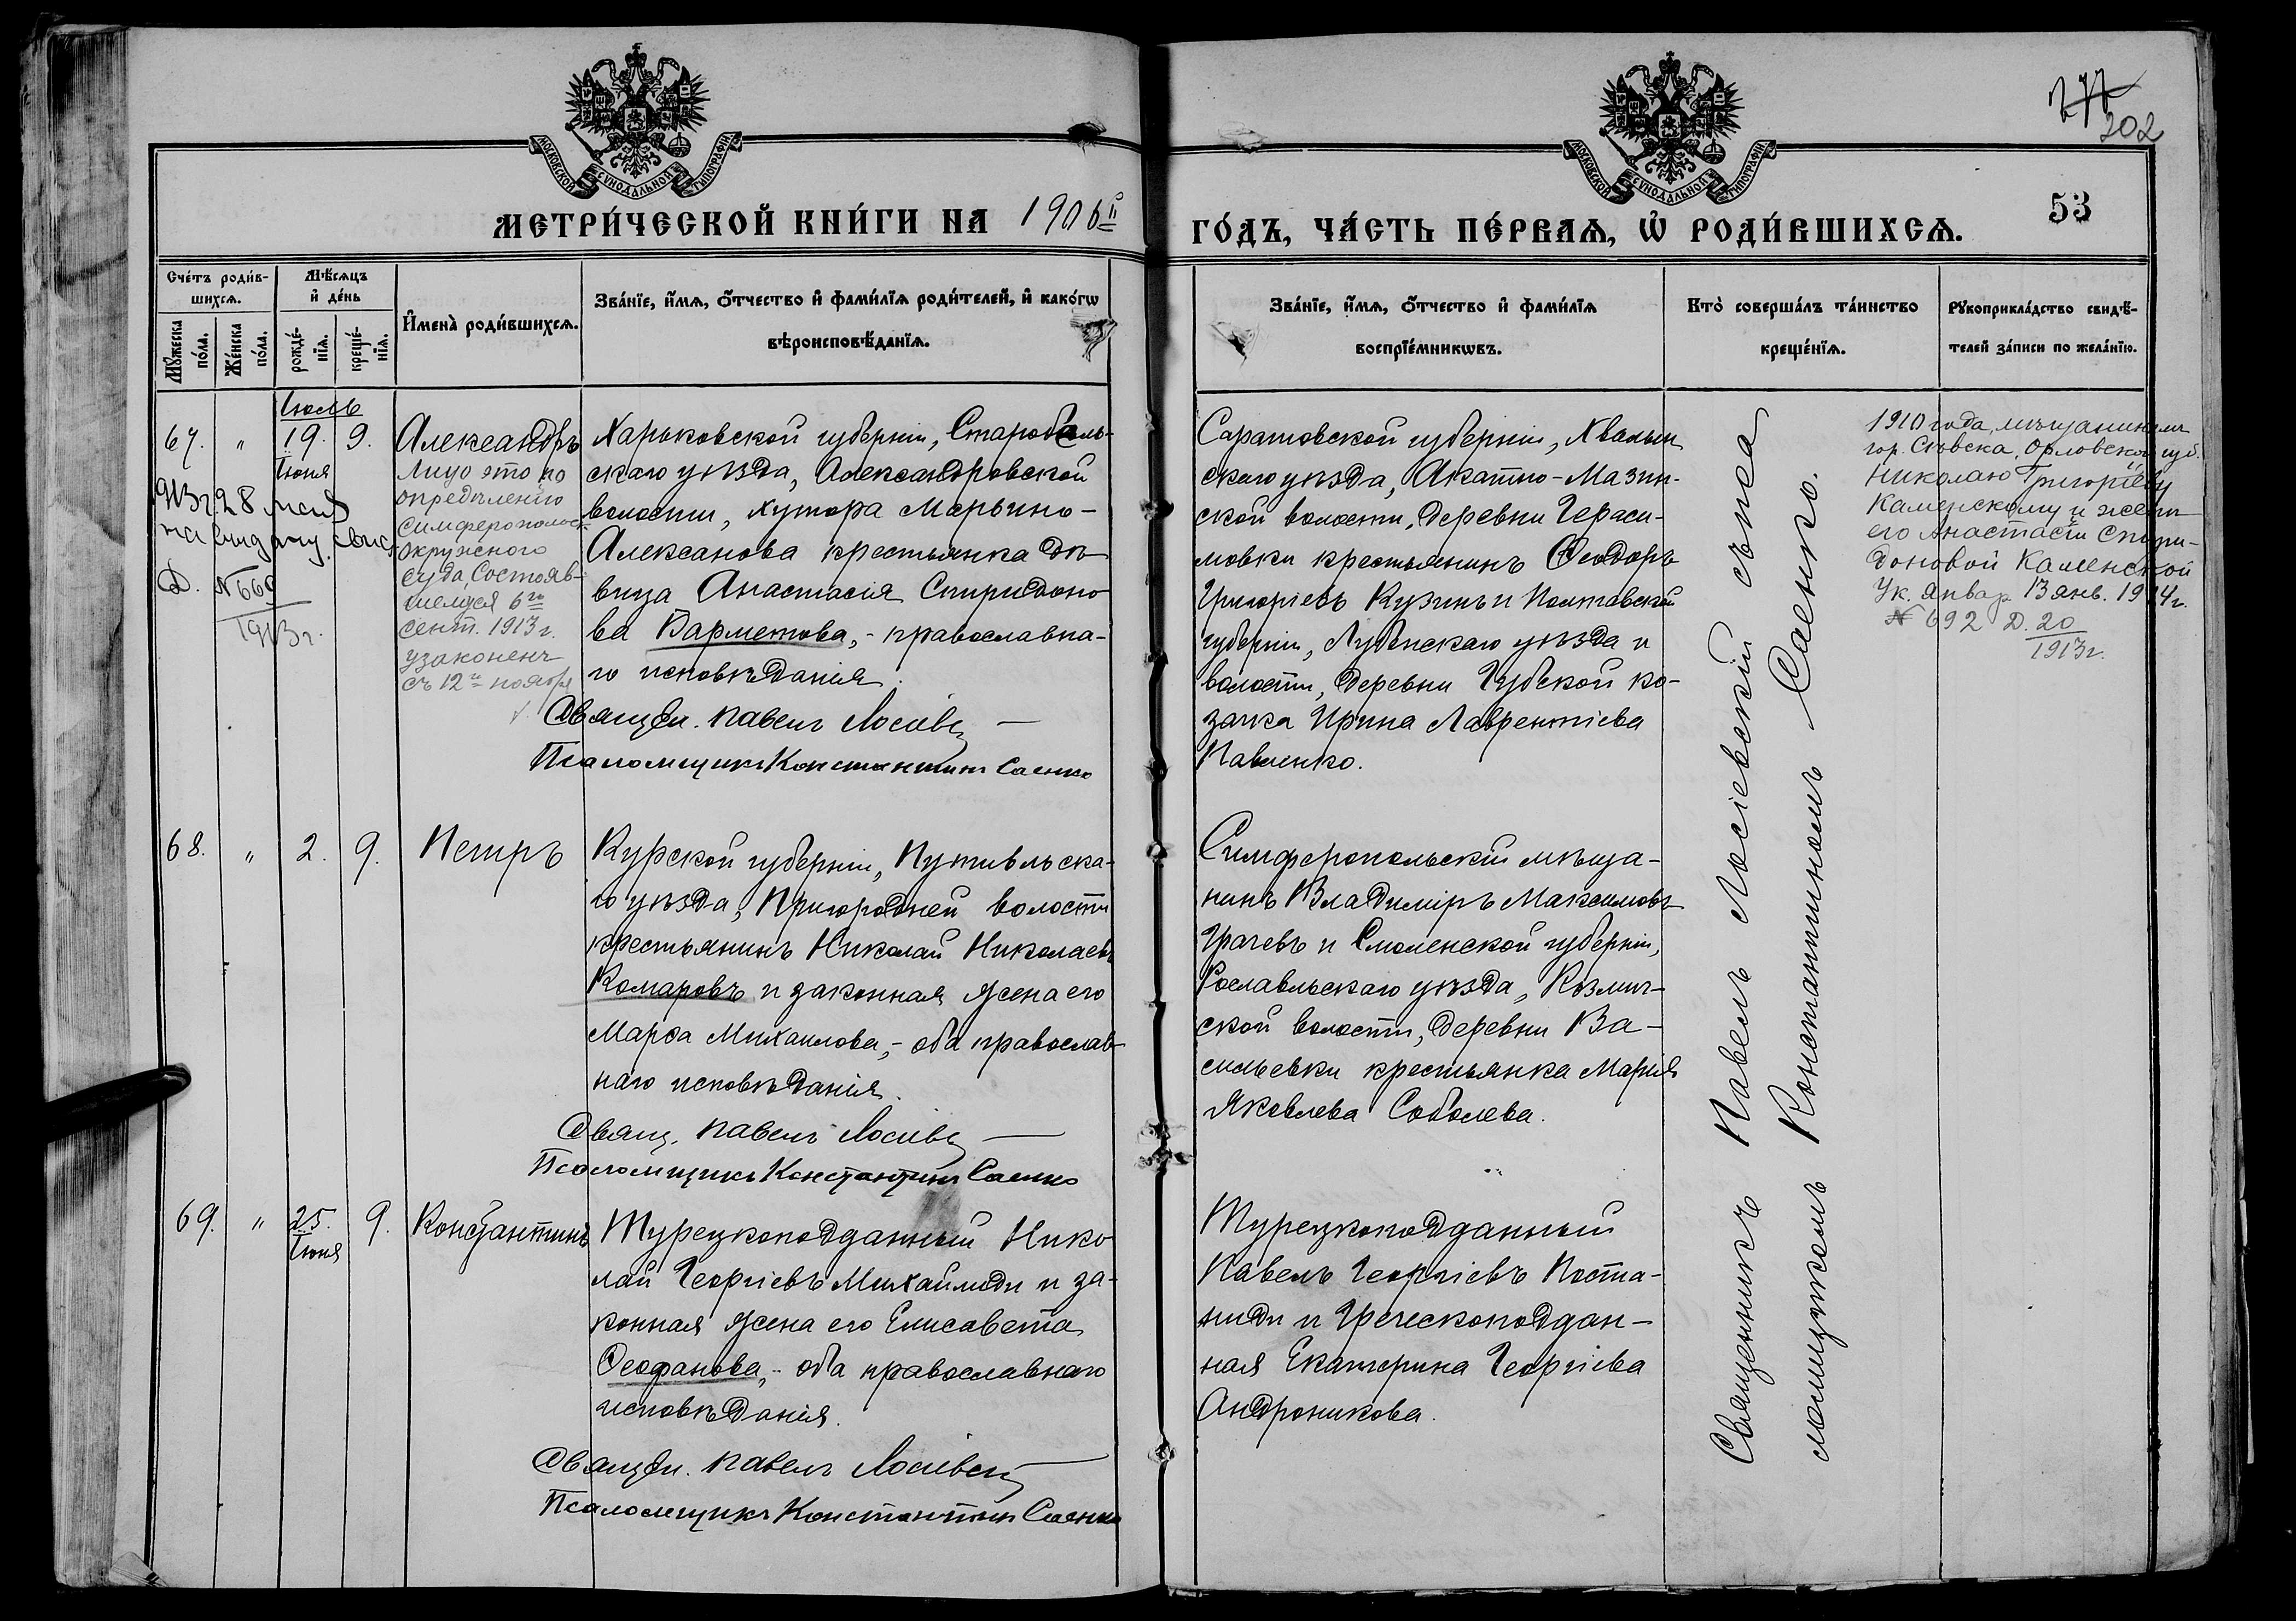 277
202
МОСКОВСКОЙ СѴНОДАЛЬНОЙ ТИПОГРАФІИ
МОСКОВСКОЙ СѴНОДАЛЬНОЙ ТИПОГРАФІИ
МЕТРИ́ЧЕСКОЙ КНИ́ГИ НА 1906й
ГО́ДЪ, ЧА́СТЬ ПЕ́РВАѦ, Ѡ҆ РОДИ́ВШИХСѦ.
53
Сче́тъ роди́в-
шихсѧ.
Мѣ́сѧцъ
и҆ де́нь
Мꙋ́жеска
по́ла.
Же́нска
по́ла.
рожде́-
нїѧ.
креще́-
нїѧ.
И҆мена̀ роди́вшихсѧ.
Зва́нїе, и҆́мѧ, ѻ҆́тчество и҆ фами́лїѧ роди́телей, и҆ како́гѡ
вѣроисповѣ́данїѧ.
Зва́нїе, и҆́мѧ, ѻ҆́тчество и҆ фами́лїѧ
воспрїе́мникѡвъ.
Кто̀ соверша́лъ та́инство
креще́нїѧ.
Рꙋкоприкла́дство свидѣ́-
телей за́писи по жела́нїю.
Іюль
67. " 19. 9.
Іюня
1913г. 28 мая
на выдану свид
Д. №660
1913г.
Александръ
Лицо это по
опредѣленію
Симферопольск.
окружного
суда, состояв-
шемуся 6го
сент. 1913 г.
узаконенъ
съ 12го ноября
Харьковской губерніи, Старобѣль-
скаго уѣзда, Александровской
волости, хутора Марьино-
Алексанова крестьянка дѣ-
вица Анастасія Спиридоно-
ва Варметова, - православна-
го исповѣданія.
Священ. Павелъ Лосіевск
Псаломщикъ Константинъ Саенко
Саратовской губерніи, Хвалын
скаго уѣзда, Акатно-Мазин-
ской волости, деревни Гераси-
мовки крестьянинъ Ѳеодоръ
Григоріевъ Кузинъ и Полтавской
губерніи, Лубенскаго уѣзда и
волости, деревни Губской ко-
зачка Ирина Лаврентіева
Павленко.
1910 года, мѣщаниномъ
гор. Сѣвска, Орловской губ.
Николаю Григоріеву
Каменскому и жены
его Анастасіи Спири-
доновой Каменской
Ук. январ 13 янв. 1914 г.
№ 692 Д. 20
1913г.
68. " 2. 9.
Петръ
Курской губерніи, Путивльска-
го уѣзда, Пригородней волости
крестьянинъ Николай Николаевъ
Комаровъ и законная жена его
Марѳа Михаилова, - оба православ-
наго исповѣданія.
Свящ. Павелъ Лосіевск
Псаломщикъ Константинъ Саенко
Симферопольскій мѣща-
нинъ Владиміръ Максимовъ
Грачевъ и Смоленской губерніи,
Рославльскаго уѣзда, Козмич-
ской волости, деревни Ва-
сильевки крестьянка Марія
Яковлева Соболева.
69. " 25. 9.
Іюня
Константинъ
Турецкоподданный Нико
лай Георгіевъ Михаилиди и за-
конная жена его Елисавета
Ѳеофанова, - оба православнаго
исповѣданія.
Священ. Павелъ Лосіевск
Псаломщикъ Константинъ Саенко
Турецкоподданный
Павелъ Георгіевъ Поста-
ниди и Греческоподдан-
ная Екатерина Георгіева
Андроникова.
Священникъ Павелъ Лосіевскій съ пса
ломщикомъ Константиномъ Саенко.